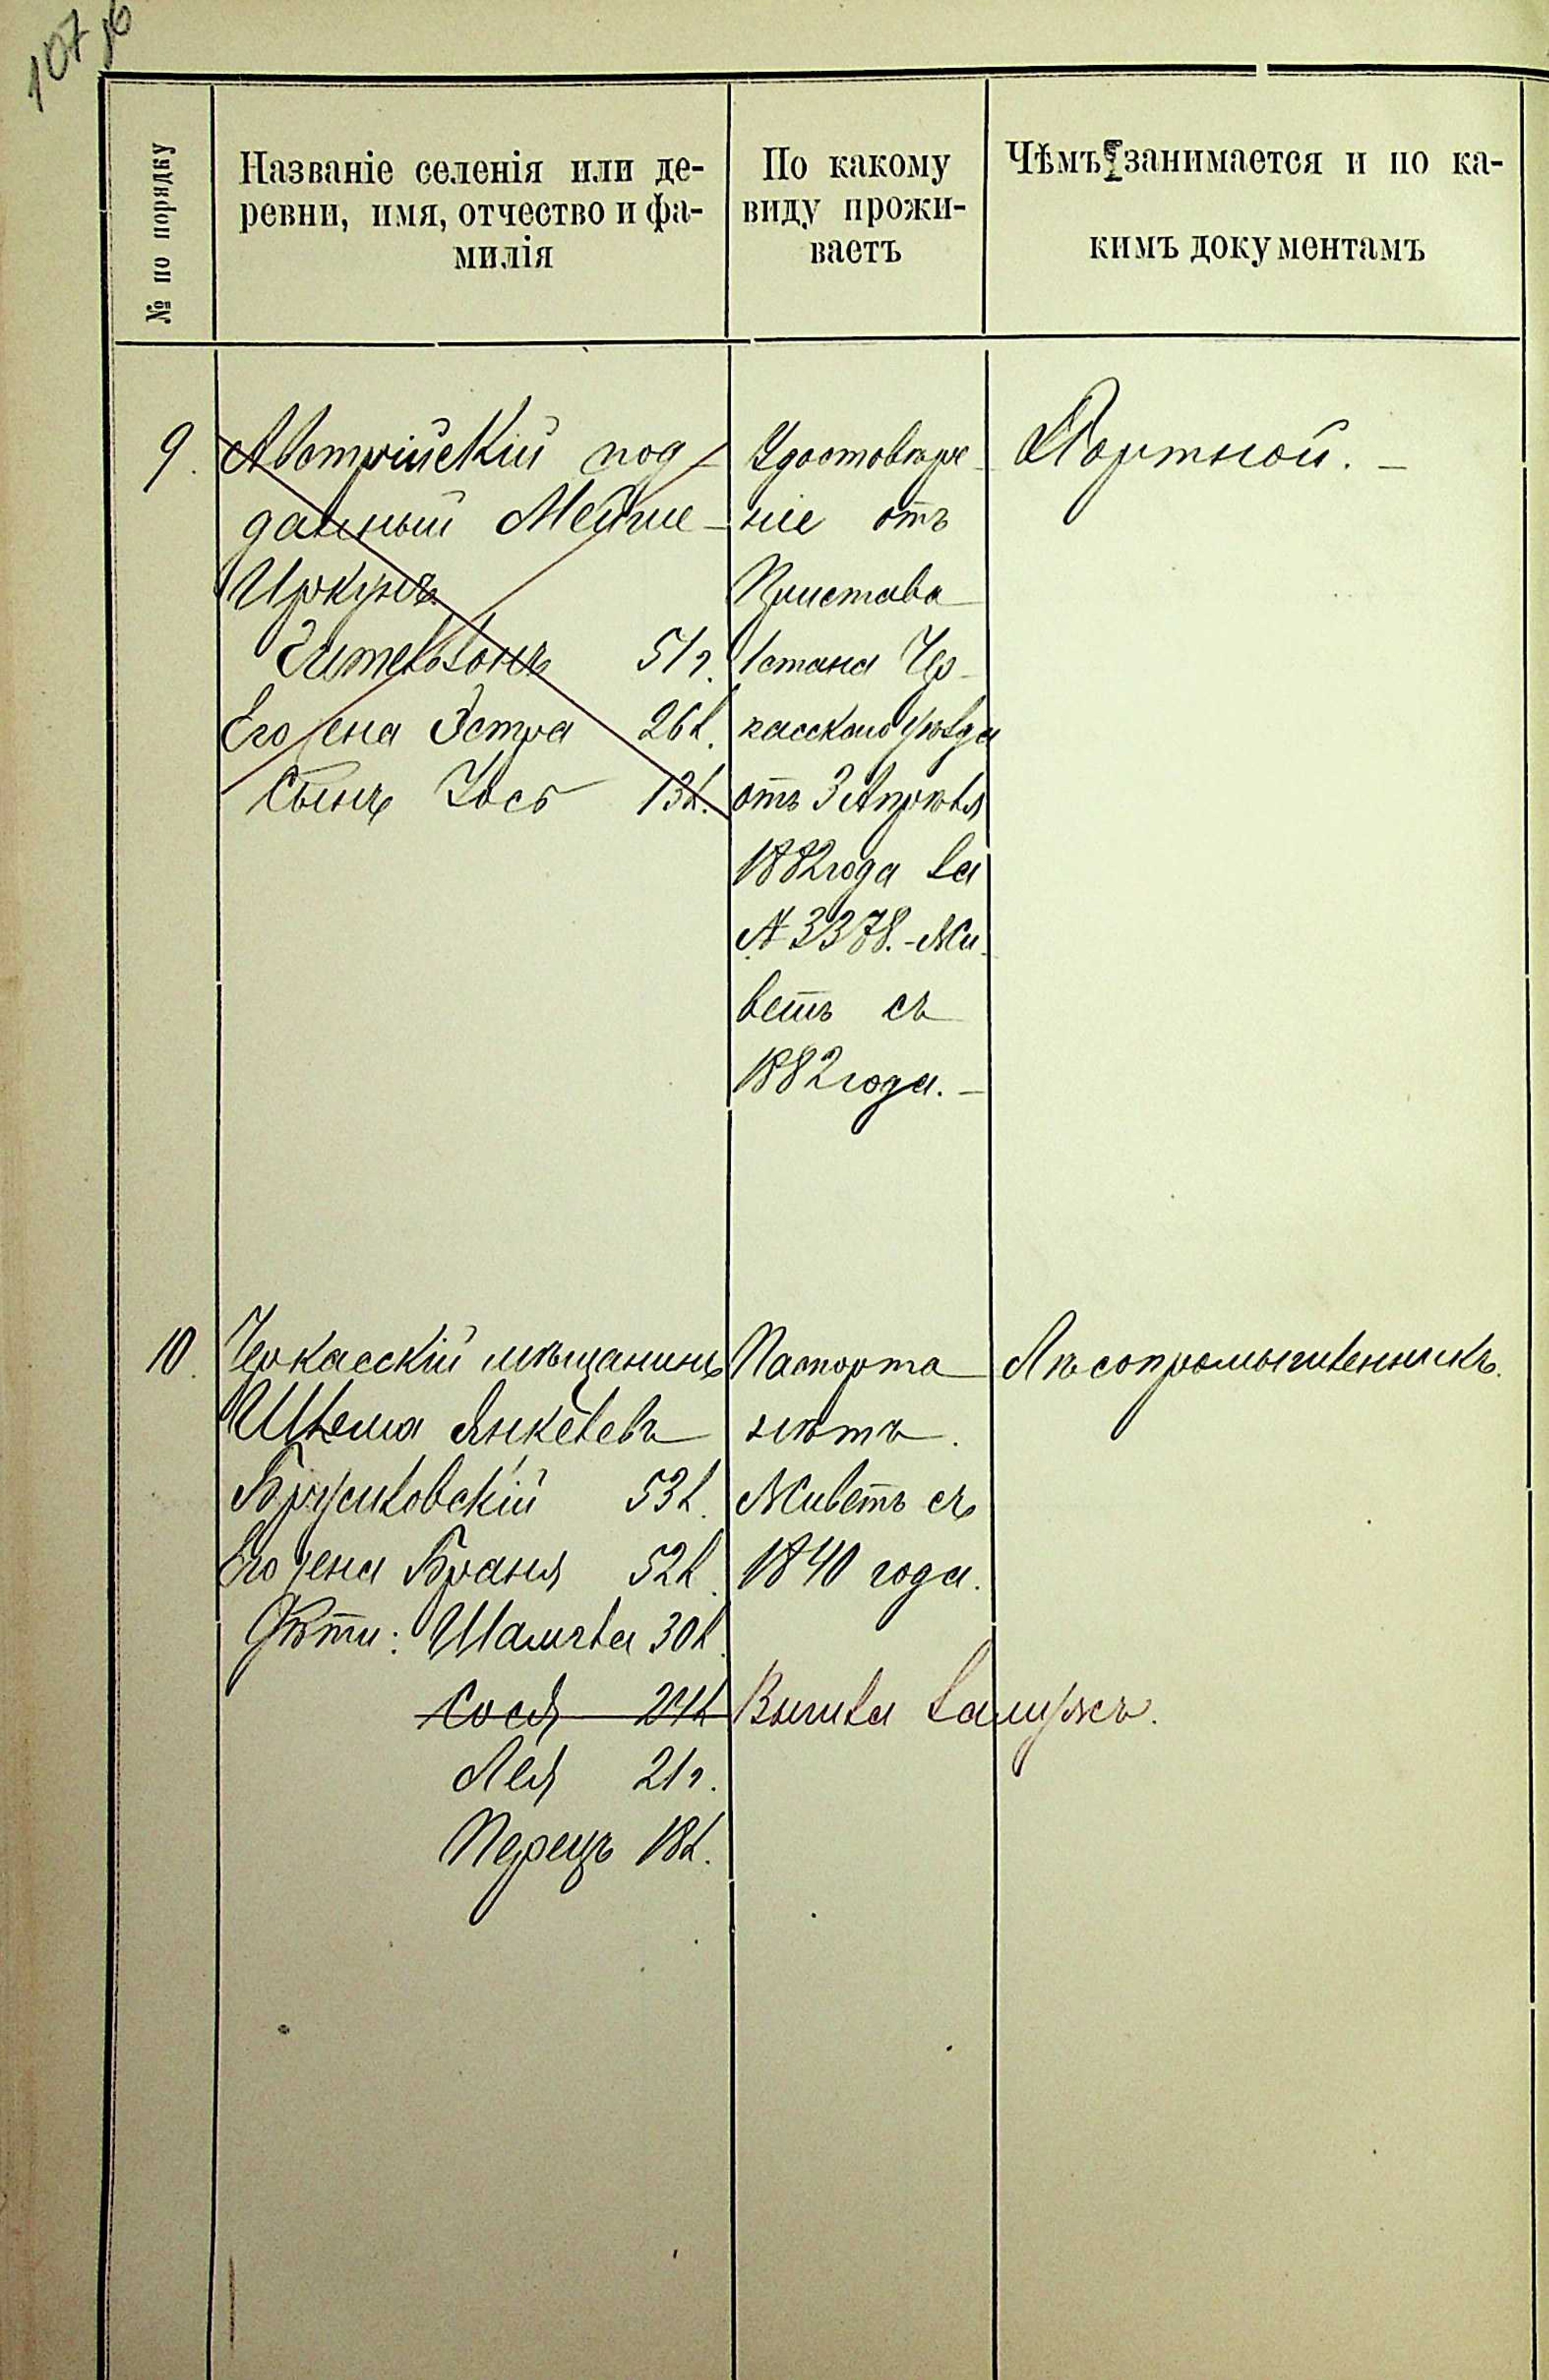 107 об
№ по порядку
Названіе селенія или де-
ревни, имя, отчество и фа-
милія
По какому
виду прожи-
ваетъ
Чѣмъ занимается и по ка-
кимъ документамъ
9.
Австрійскій под-
данный Мейше-
Ицкунъ
Зительзонъ 51 г.
Его жена Эстра 26 л.
Сынъ Іось 13 л.
Удостовѣре-
ніе отъ
Пристава
1 стана Чер-
касскаго уѣзда
отъ 3 Апрѣля
1882 года за
№ 3378. - Жи-
ветъ съ
1882 года. -
Портной. -
10.
Черкасскій мѣщанинъ
Шлема Янкелевъ
Бруслов­скій 53 л.
Его жена Браня 52 л.
Дѣти: 30 л.
Сося 24 л.
Лея 21 г.
Перецъ 18 л.
Паспорта
нѣтъ.
Живетъ съ
1840 года.
Вышла замужъ.
Лѣсопромышленникъ.